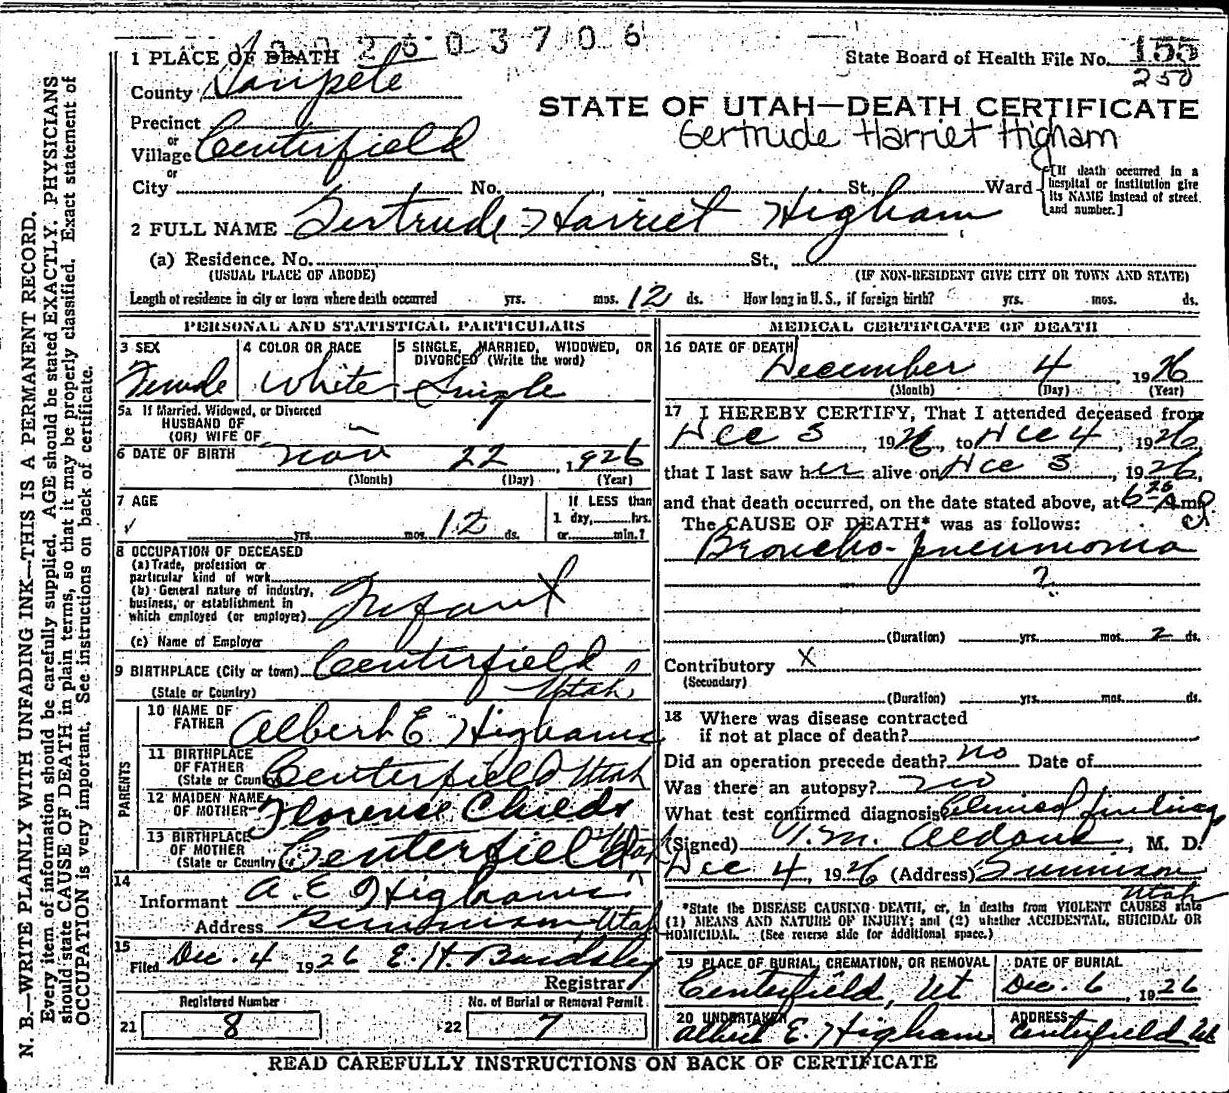 2603706
1 PLACE OF DEATH
State Board of Health File No. 155
250
County Sanpete
STATE OF UTAH—DEATH CERTIFICATE
Gertrude Harriet Higham
Precinct
or
Village Centerfield
or
City No. , St., Ward
[If death occurred in a hospital or institution give its NAME instead of street and number.]
2 FULL NAME Gertrude Harriet Higham
(a) Residence. No. St.,
(USUAL PLACE OF ABODE) (IF NON-RESIDENT GIVE CITY OR TOWN AND STATE)
Length of residence in city or town where death occurred yrs. mos. 12 ds. How long in U. S., if foreign birth? yrs. mos. ds.
PERSONAL AND STATISTICAL PARTICULARS
3 SEX 4 COLOR OR RACE 5 SINGLE, MARRIED, WIDOWED, OR DIVORCED (Write the word)
Female White Single
5a If Married, Widowed, or Divorced
HUSBAND OF
(OR) WIFE OF
6 DATE OF BIRTH Nov 22, 1926
(Month) (Day) (Year)
7 AGE If LESS than
1 day, hrs.
yrs. mos. 12 ds. or min.?
8 OCCUPATION OF DECEASED
(a) Trade, profession or
particular kind of work
(b) General nature of industry,
business, or establishment in
which employed (or employer) Infant
(c) Name of Employer
9 BIRTHPLACE (City or town) Centerfield
(State or Country) Utah
PARENTS
10 NAME OF
FATHER Albert E Higham
11 BIRTHPLACE
OF FATHER
(State or Country) Centerfield Utah
12 MAIDEN NAME
OF MOTHER Florense Childs
13 BIRTHPLACE
OF MOTHER
(State or Country) Centerfield Utah
14
Informant A. E Higham
Address Gunnison, Utah
15
Filed Dec. 4 1926 E. H. Bardsley
Registrar
Registered Number No. of Burial or Removal Permit
21 8 22 7
MEDICAL CERTIFICATE OF DEATH
16 DATE OF DEATH December 4 1926
(Month) (Day) (Year)
17 I HEREBY CERTIFY, That I attended deceased from
Dec 3, 1926, to Dec 4, 1926
that I last saw her alive on Dec 3, 1926,
and that death occurred, on the date stated above, at 6 A m
The CAUSE OF DEATH* was as follows:
Broncho-pneumonia
?
(Duration) yrs. mos. 2 ds.
Contributory X
(Secondary)
(Duration) yrs. mos. ds.
18 Where was disease contracted
if not at place of death?
Did an operation precede death? no Date of
Was there an autopsy? no
What test confirmed diagnosis Clinical findings
(Signed) M. D.
Dec 4, 1926 (Address) Gunnison
Utah
*State the DISEASE CAUSING DEATH, or, in deaths from VIOLENT CAUSES state
(1) MEANS AND NATURE OF INJURY; and (2) whether ACCIDENTAL, SUICIDAL OR
HOMICIDAL. (See reverse side for additional space.)
19 PLACE OF BURIAL, CREMATION, OR REMOVAL DATE OF BURIAL
Centerfield, Ut Dec. 6, 1926
20 UNDERTAKER ADDRESS
Albert E. Higham Centerfield Ut
READ CAREFULLY INSTRUCTIONS ON BACK OF CERTIFICATE
N. B.—WRITE PLAINLY WITH UNFADING INK—THIS IS A PERMANENT RECORD.
Every item of information should be carefully supplied. AGE should be stated EXACTLY. PHYSICIANS
should state CAUSE OF DEATH in plain terms, so that it may be properly classified. Exact statement of
OCCUPATION is very important. See instructions on back of certificate.